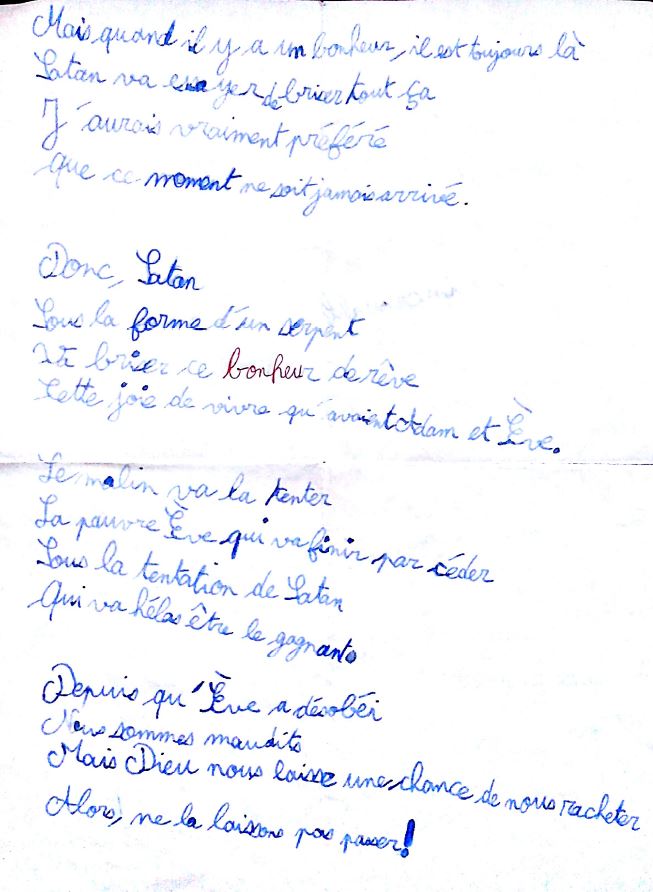 Mais quand il y a un bonheur, il est toujours là
Satan va essayer de briser tout ça
J'aurais vraiment préféré
Que ce moment ne soit jamais arrivé.
Donc, Satan
Sous la forme d'un serpent
Va briser ce bonheur de rêve
Cette joie de vivre qu'avaient Adam et Ève.
Le malin va la tenter
La pauvre Ève qui va finir par céder
Sous la tentation de Satan
Qui va hélas être le gagnant.
Depuis qu'Ève a désobéi
Nous sommes maudits
Mais Dieu nous laisse une chance de nous racheter
Alors, ne la laissons pas passer!